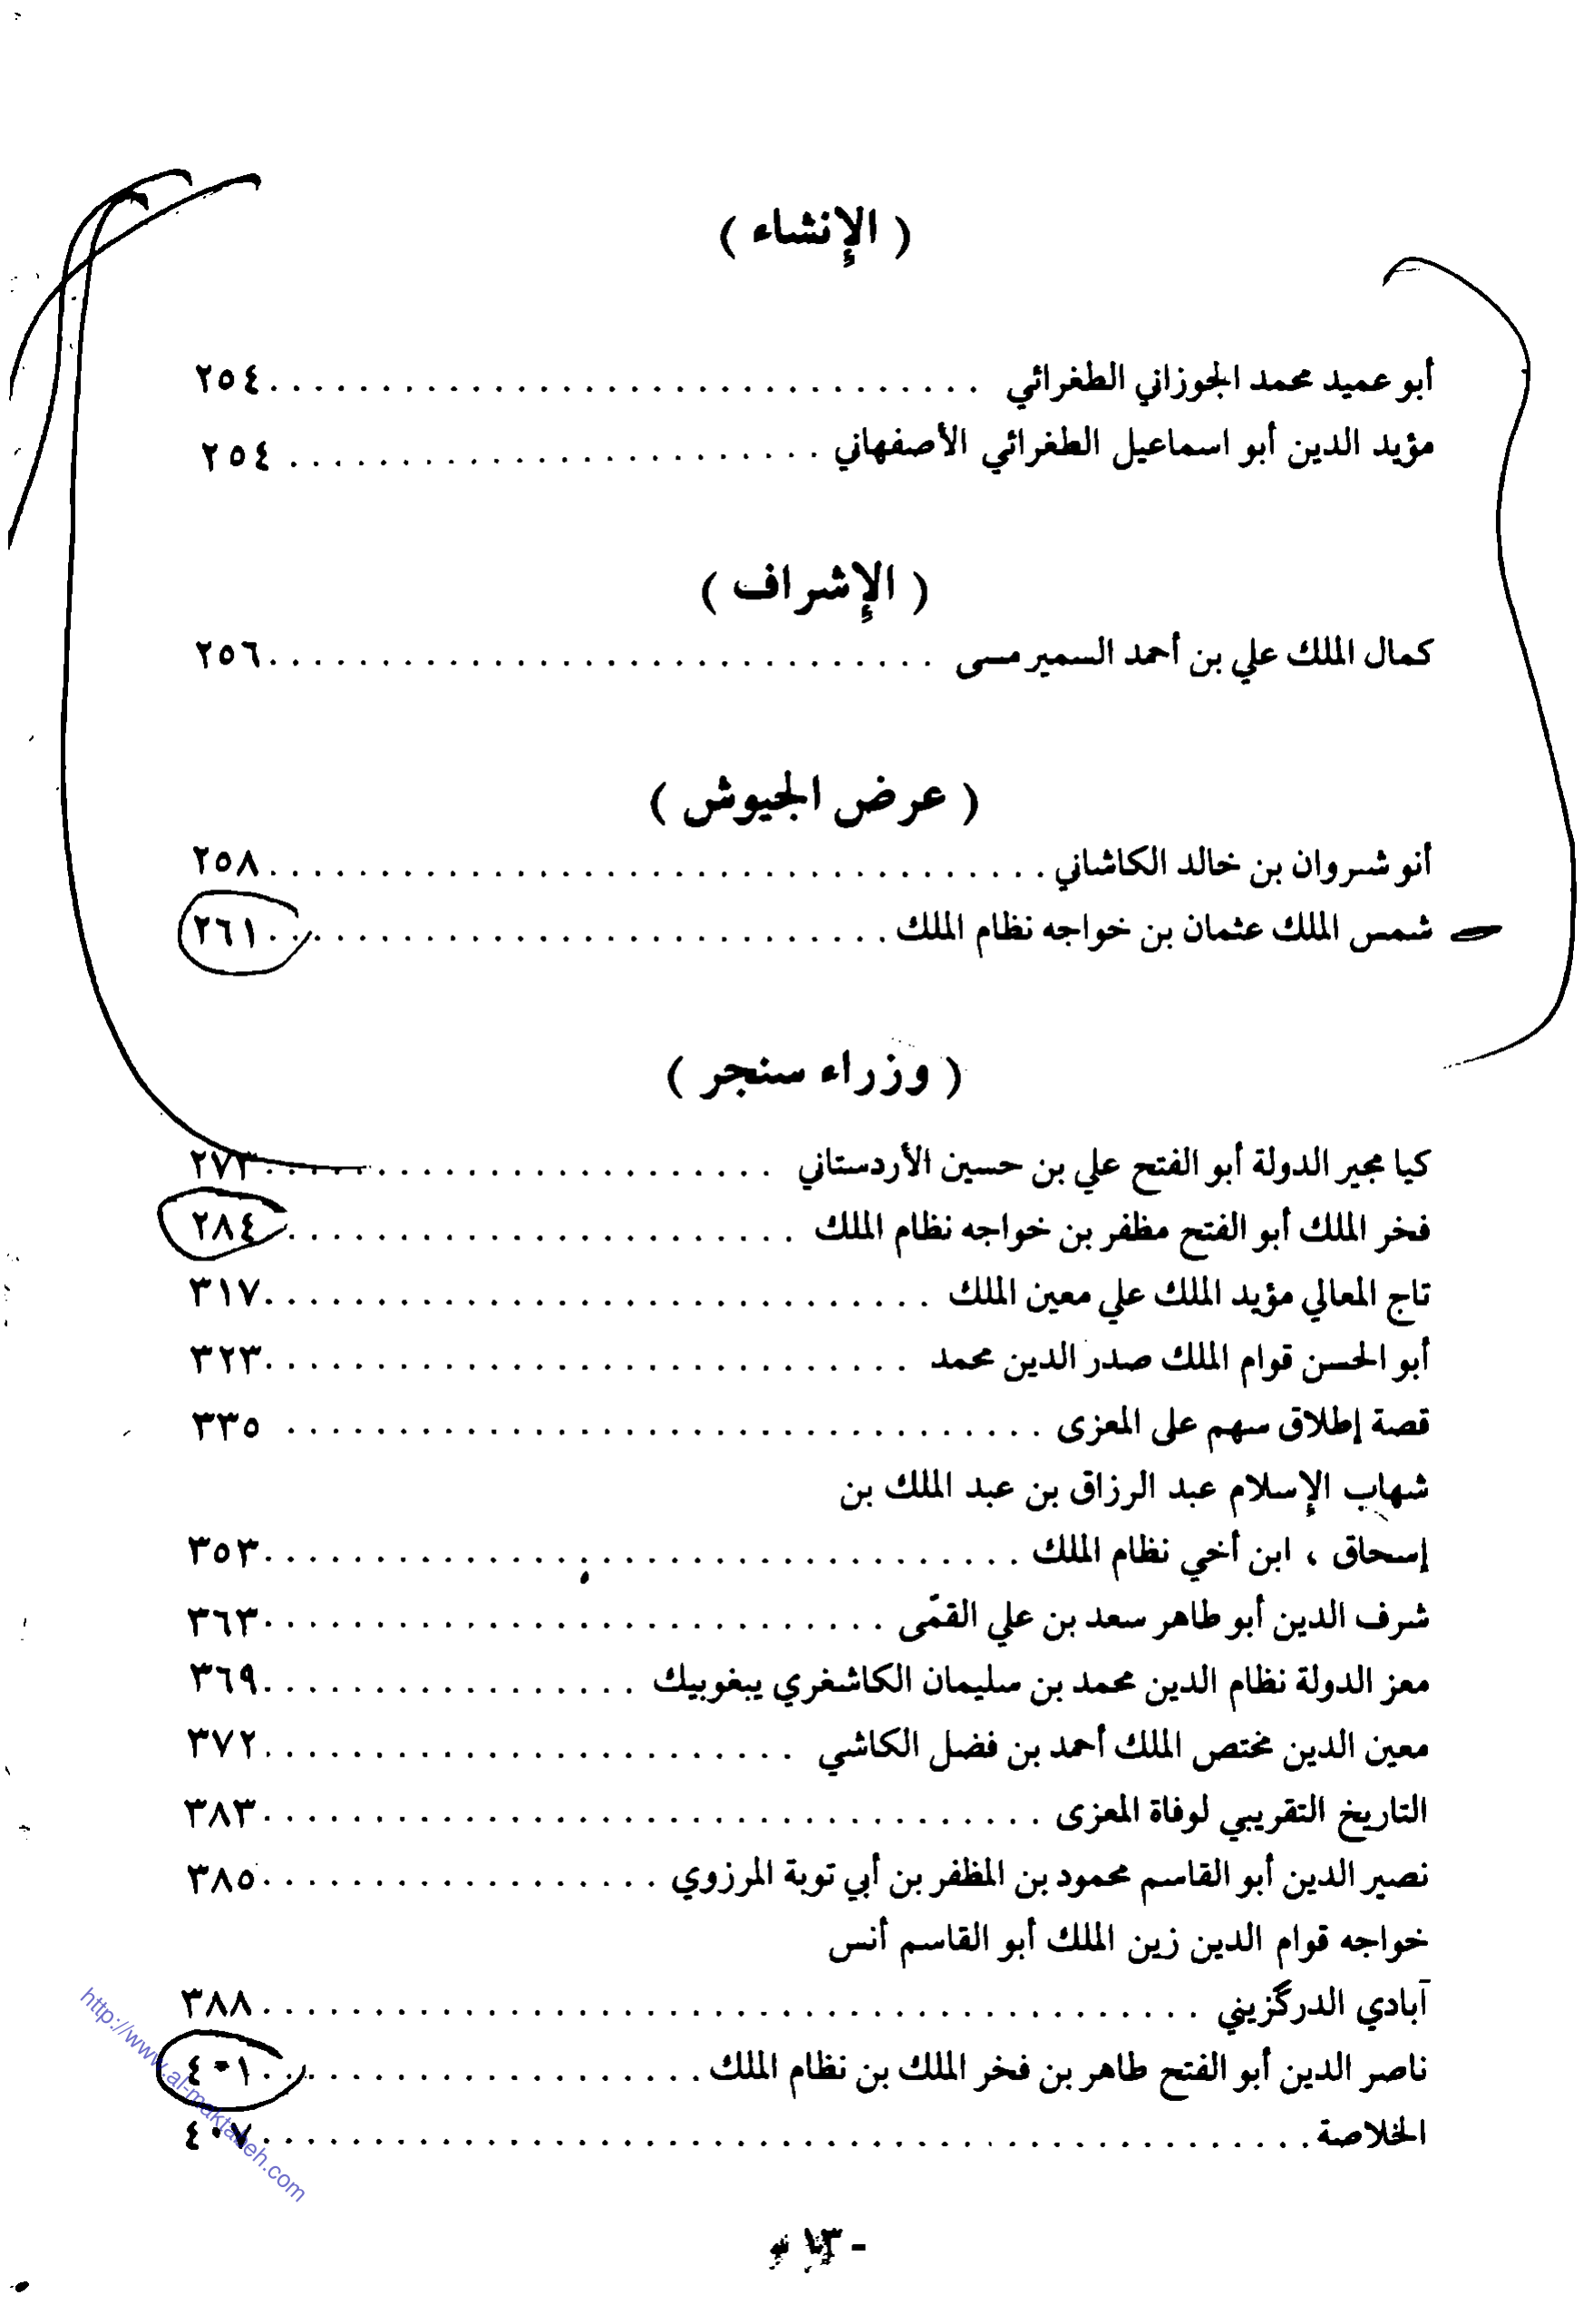 ( الإنشاء )
أبو عميد محمد الجوزاني الطغرائي ................................ ٢٥٤
مؤيد الدين أبو اسماعيل الطغرائي الأصفهاني ........................ ٢٥٤
( الإشراف )
كمال الملك علي بن أحمد السميرمسى .............................. ٢٥٦
( عرض الجيوش )
أنو شروان بن خالد الكاشاني ................................... ٢٥٨
شمس الملك عثمان بن خواجه نظام الملك ............................ ٢٦١
( وزراء سنجر )
كيا مجير الدولة أبو الفتح علي بن حسين الأردستاني ....................... ٢٧٣
فخر الملك أبو الفتح مظفر بن خواجه نظام الملك ....................... ٢٨٤
تاج المعالي مؤيد الملك علي معين الملك .............................. ٣١٧
أبو الحسن قوام الملك صدر الدين محمد ............................. ٣٢٣
قصة إطلاق سهم على المعزى .................................. ٣٣٥
شهاب الإسلام عبد الرزاق بن عبد الملك بن
إسحاق ، ابن أخي نظام الملك .................................. ٣٥٣
شرف الدين أبو طاهر سعد بن علي القمّى ............................ ٣٦٣
معز الدولة نظام الدين محمد بن سليمان الكاشغري يبغوبيك ................. ٣٦٩
معين الدين مختص الملك أحمد بن فضل الكاشي ........................ ٣٧٢
التاريخ التقريبي لوفاة المعزى ................................... ٣٨٣
نصير الدين أبو القاسم محمود بن المظفر بن أبي توبة المرزوي .................. ٣٨٥
خواجه قوام الدين زين الملك أبو القاسم أنس
آبادي الدرگزيني .......................................... ٣٨٨
ناصر الدين أبو الفتح طاهر بن فخر الملك بن نظام الملك .................... ٤٠١
الخلاصة ............................................... ٤٠٧
- ١٣ -
http://www.al-maktabeh.com